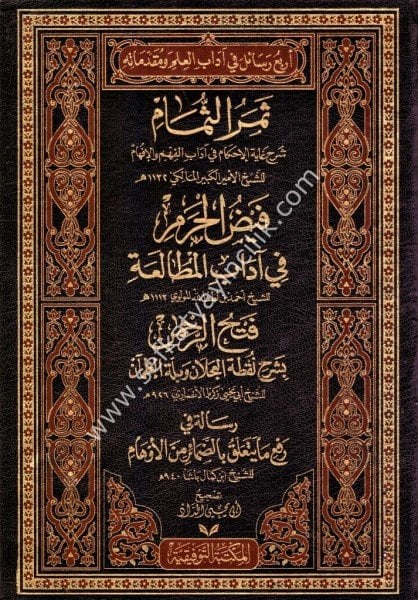 أربع رسائل في آداب العلم ومقدماته
ثمر الثمام
شرح غاية الإحكام في آداب الفهم والإفهام
للشيخ الأمير الكبير المالكي ١١٢٢هـ
فيض الحرم
في آداب المطالعة
للشيخ أحمد بن لطف الله المولوي ١١١٣هـ
فتح الرحمن
بشرح لقطة العجلان وبلة الظمآن
للشيخ أبي يحيى زكريا الأنصاري ٩٢٦هـ
رسالة في
رفع ما يتعلق بالضمائر من الأوهام
للشيخ ابن كمال باشا ٩٤٠هـ
تصحيح
المكتبة التوفيقية